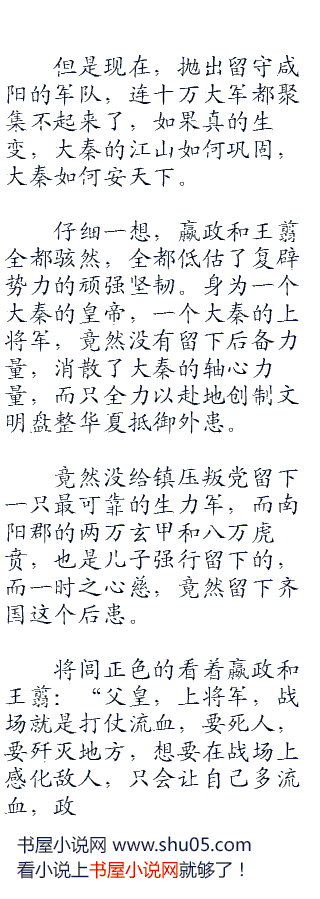 但是现在，抛出留守咸
阳的军队，连十万大军都聚
集不起来了，如果真的生
变，大秦的江山如何巩固，
大秦如何安天下。
仔细一想，嬴政和王翦
全都骇然，全都低估了复辟
势力的顽强坚韧。身为一个
大秦的皇帝，一个大秦的上
将军，竟然没有留下后备力
量，消散了大秦的轴心力
量，而只全力以赴地创制文
明盘整华夏抵御外患。
竟然没给镇压叛党留下
一只最可靠的生力军，而南
阳郡的两万玄甲和八万虎
贲，也是儿子强行留下的，
而一时之心慈，竟然留下齐
国这个后患。
将闾正色的看着嬴政和
王翦：“父皇，上将军，战
场就是打仗流血，要死人，
要歼灭地方，想要在战场上
感化敌人，只会让自己多流
血，政
书屋小说网 www.shu05.com
看小说上书屋小说网就够了！